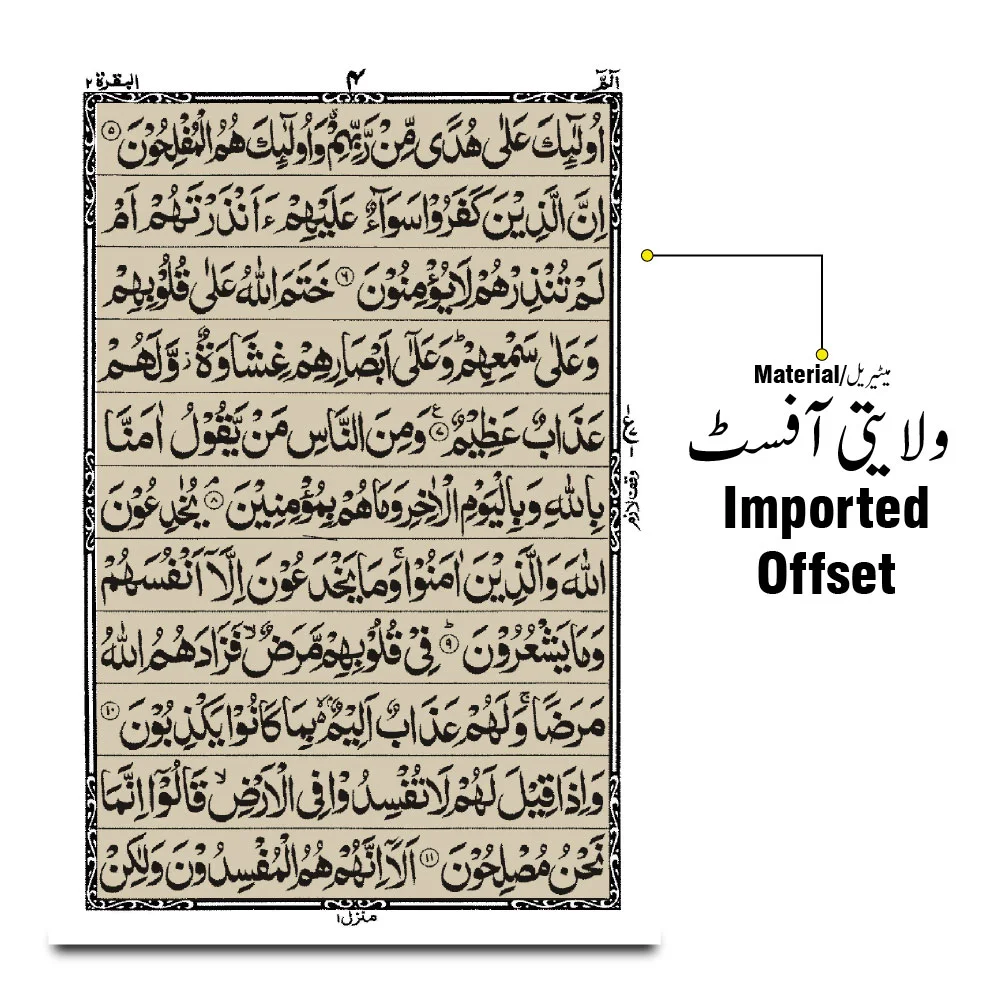 الٓمّٓ ۴ البقرة ۲
اُولٰٓئِكَ عَلٰى هُدًى مِّنْ رَّبِّهِمْ ۗ وَاُولٰٓئِكَ هُمُ الْمُفْلِحُوْنَ ۵
اِنَّ الَّذِيْنَ كَفَرُوْا سَوَآءٌ عَلَيْهِمْ ءَاَنْذَرْتَهُمْ اَمْ
لَمْ تُنْذِرْهُمْ لَا يُؤْمِنُوْنَ ۶ خَتَمَ اللّٰهُ عَلٰى قُلُوْبِهِمْ
وَعَلٰى سَمْعِهِمْ ؕ وَعَلٰٓى اَبْصَارِهِمْ غِشَاوَةٌ ز وَّلَهُمْ
عَذَابٌ عَظِيْمٌ ۷ ع وَمِنَ النَّاسِ مَنْ يَّقُوْلُ اٰمَنَّا
بِاللّٰهِ وَبِالْيَوْمِ الْاٰخِرِ وَمَا هُمْ بِمُؤْمِنِيْنَ ۘ ۸ يُخٰدِعُوْنَ
اللّٰهَ وَالَّذِيْنَ اٰمَنُوْا ۚ وَمَا يَخْدَعُوْنَ اِلَّآ اَنْفُسَهُمْ
وَمَا يَشْعُرُوْنَ ؕ ۹ فِيْ قُلُوْبِهِمْ مَّرَضٌ ۙ فَزَادَهُمُ اللّٰهُ
مَرَضًا ۚ وَلَهُمْ عَذَابٌ اَلِيْمٌ ۢ ۙ بِمَا كَانُوْا يَكْذِبُوْنَ ۱۰
وَاِذَا قِيْلَ لَهُمْ لَا تُفْسِدُوْا فِى الْاَرْضِ ۙ قَالُوْٓا اِنَّمَا
نَحْنُ مُصْلِحُوْنَ ۱۱ اَلَآ اِنَّهُمْ هُمُ الْمُفْسِدُوْنَ وَلٰكِنْ
ع ۷
وقف لازم
منزل ۱
Material/میٹیریل
ولایتی آفسٹ
Imported
Offset